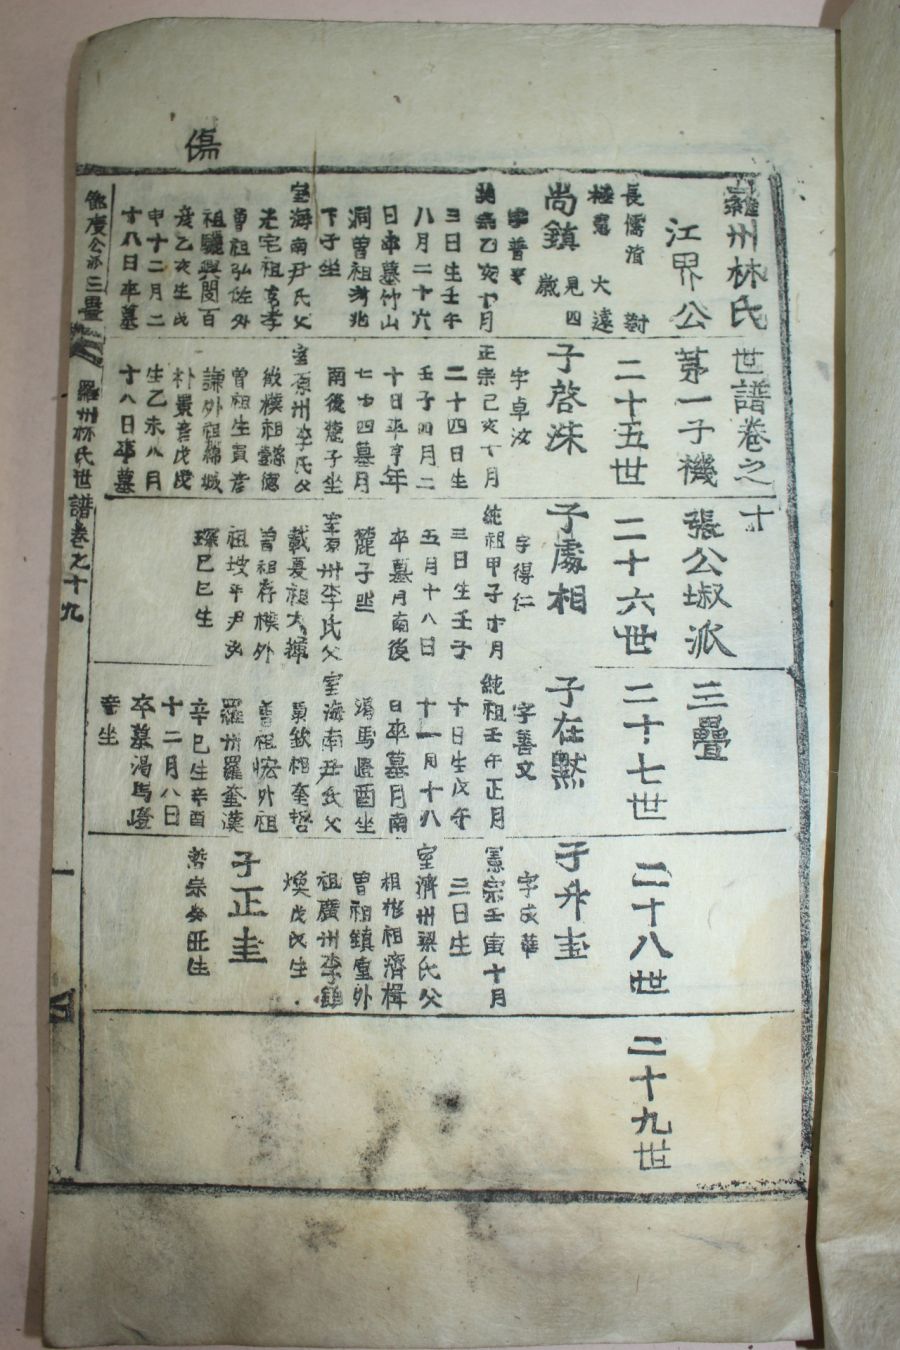 傷
羅州林氏世譜卷之十
江界公第一子機張公㙉派三疊
二十五世
二十六世
二十七世
二十八世
二十九世
尚鎮
見四歲
八月二十六
日卒墓竹山
洞曾祖考兆
下子坐
室海南尹氏父
曾祖弘佐外
祖驪興閔百
彦乙亥生戊
申十二月二
十八日卒墓
子啓洙
字卓汝
正宗己亥十月
二十四日生
壬子四月二
十日卒享年
七十四墓月
南後麓子坐
室原州李氏父
曾祖生寅彦
謙外祖綿城
生乙未八月
十八日卒墓
子處相
字得仁
純祖甲子十月
三日生壬子
五月十八日
卒墓月南後
麓子坐
室原州李氏父
載憂祖大
曾祖存樸外
祖坡平尹
琛己巳生
子在默
字善文
純祖壬午正月
十日生戊午
十一月十八
日卒墓月南
渴馬嶝酉坐
室海南尹氏父
曾祖宏外祖
羅州羅奎漢
辛巳生辛酉
十二月八日
卒墓渴馬嶝
辛坐
子升圭
字成華
憲宗壬寅十月
三日生
室濟州梁氏父
相彬祖濟楫
曾祖鎮奎外
祖廣州李鍾
煥戊戌生
子正圭
哲宗癸丑生
羅州林氏世譜卷之十九
一